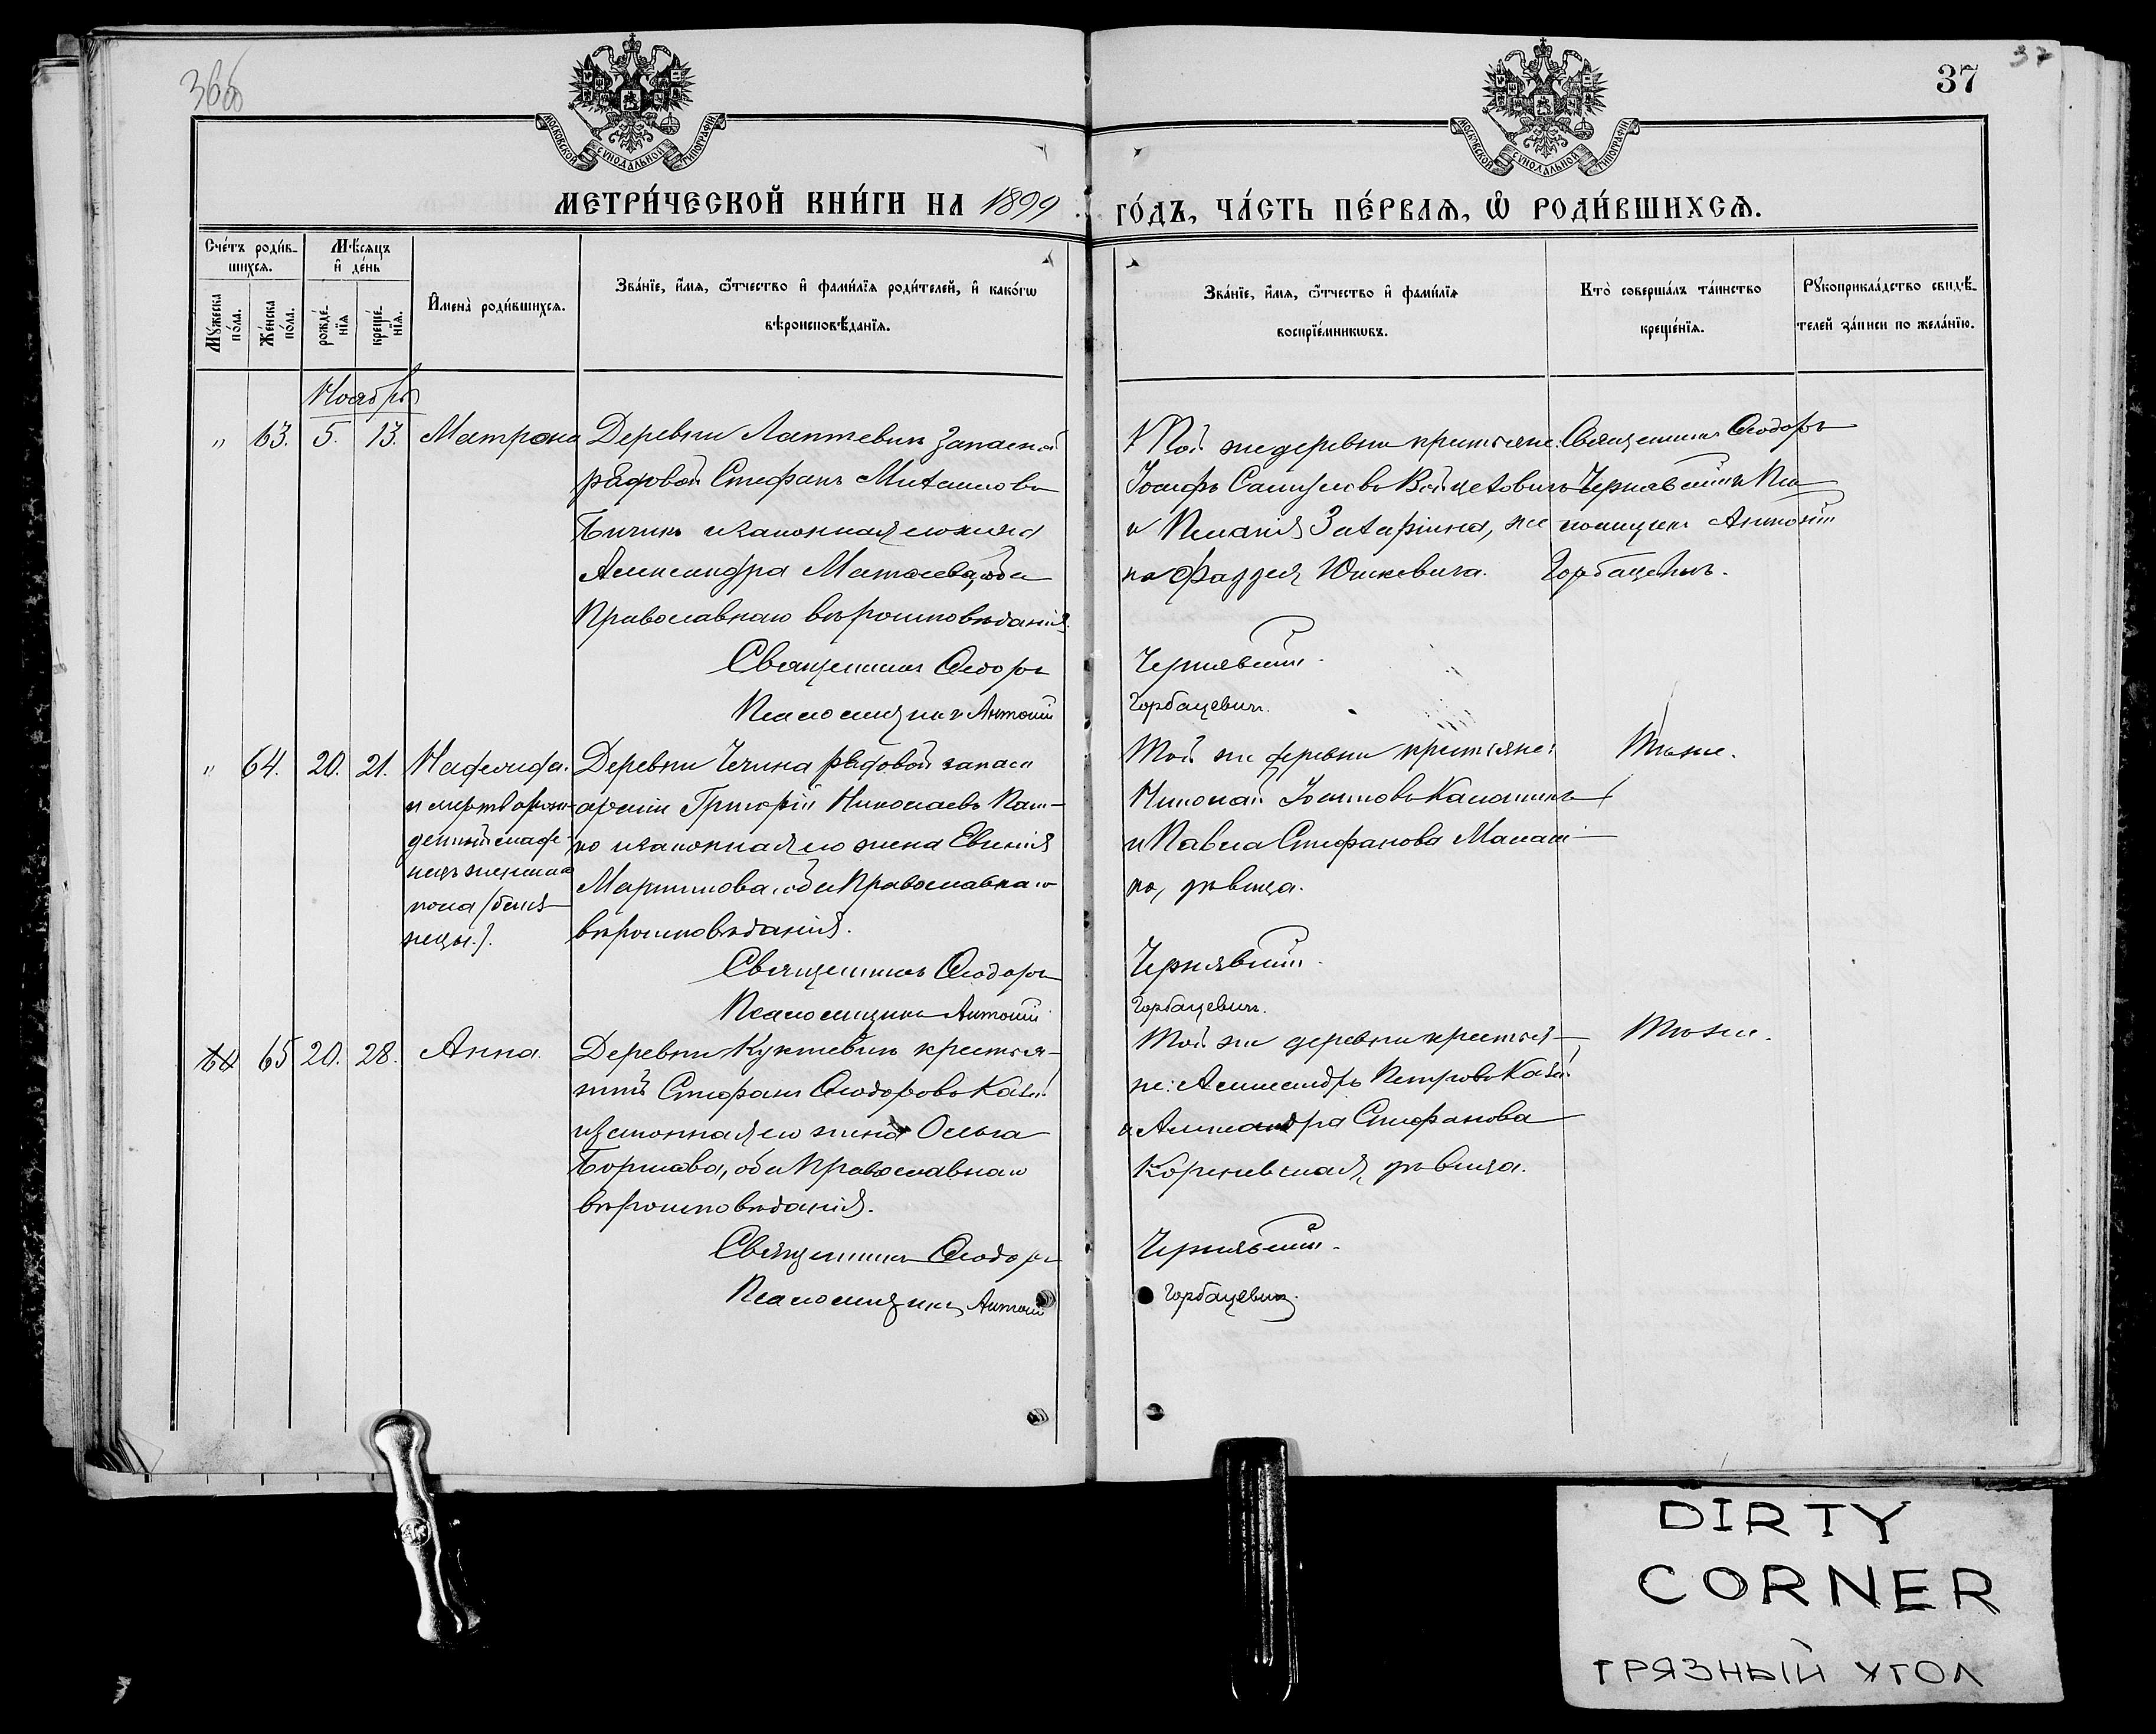 36об
37
37
МОСКОВСКОЙ СѴНОДАЛЬНОЙ ТИПОГРАФІИ
МОСКОВСКОЙ СѴНОДАЛЬНОЙ ТИПОГРАФІИ
МЕТРИ́ЧЕСКОЙ КНИ́ГИ НА 1899
ГО́ДЪ, ЧА́СТЬ ПЕ́РВАѦ, Ѡ҆ РОДИ́ВШИХСѦ.
Сче́тъ роди́в-
шихсѧ.
Мѣ́сѧцъ
и҆ де́нь
Мꙋ́жеска
по́ла.
Же́нска
по́ла.
рожде́-
нїѧ
креще́-
нїѧ.
И҆мена̀ роди́вшихсѧ.
Зва́нїе, и҆́мѧ, ѻ҆́тчество и҆ фами́лїѧ роди́телей, и҆ како́гѡ
вѣроисповѣ́данїѧ.
Зва́нїе, и҆́мѧ, ѻ҆́тчество и҆ фами́лїѧ
воспрїе́мникѡвъ.
Кто̀ соверша́лъ та́инство
креще́нїѧ.
Рꙋкоприкла́дство свидѣ́-
телей за́писи по жела́нїю.
Ноябрь
" 63. 5. 13. Матрона
Деревни Лаптевичъ запасной
рядовой Стефанъ Михаиловъ
Бичикъ и законная его жена
Александра Матѳеева, оба
Православнаго вѣроисповѣданія.
Священникъ Ѳеодоръ
Псаломщикъ Антоній
Той же деревни крестьяне:
Іосифъ Самуиловъ Войцеховичъ
и Пелагія Захаріина, же
на Фаддея Юшкевича.
Чернявскій.
Горбацевичъ.
Священникъ Ѳеодоръ
Чернявскій и Пса
ломщикъ Антоній
Горбацевичъ.
" 64. 20. 21. Надежда
и мертворож-
денный младе-
нецъ женскаго
пола (близ-
нецы.).
Деревни Ячина рядовой запаса
арміи Григорій Николаевъ Паш-
ко и законная его жена Евгенія
Мартинова, оба Православнаго
вѣроисповѣданія.
Священникъ Ѳеодоръ
Псаломщикъ Антоній
Той же деревни крестьяне:
Николай Іосифовъ
и Павла Стефанова
ко, дѣвица.
Чернявскій.
Горбацевичъ.
Тѣже.
64 65 20. 28. Анна.
Деревни Куктевичъ крестья-
нинъ Стефанъ Ѳеодоровъ
и законная его жена Ольга
Борисова, оба Православнаго
вѣроисповѣданія.
Священникъ Ѳеодоръ
Псаломщикъ Антоній
Той же деревни крестья-
не: Александръ Петровъ
и Александра Стефанова
Кореневская, дѣвица.
Чернявскій.
Горбацевичъ.
Тѣже.
DIRTY
CORNER
ГРЯЗНЫЙ УГОЛ